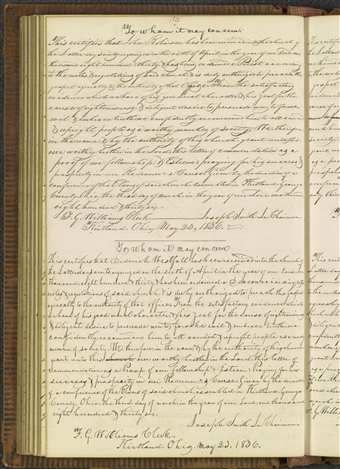 116
To whom it may concern
This certifies that John Robinson has been received into the church of
the Latter day saints organized on the sixth of April in the year of our Lord one
thousand eight hundred & thirty & has been ordained a Priest according
to the rules & regulations of said church & is duly authorized to preach the
gospel agreeably to the authority of that office From the satisfactory
evidence which we have of his good moral character & his zeal for the
cause of righteousness & diligent desire to persuade men to forsake
evil & embrace truth we confidently recommend him to all candid
& upright people as a worthy member of society. We therefore
in the name & by the authority of this church grant unto this
our worthy brother in the Lord this letter of commendation as a
proof of our fellowship & Esteem praying for his success &
prosperity in our Redeemer's Cause Given by the direction of a
conference of the Elders of said church assembled in Kirtland Geauga
County Ohio the third day of March in the year of our Lord one thousand
eight hundred & thirty six.
F. G. Williams Clerk. Joseph Smith Jr Chairman
Kirtland Ohio May 23, 1836.
To whom it may concern
This certifies that has been received into the church
of the Latter day saints organized on the sixth of April in the year of our Lord one
thousand eight hundred & thirty & has been ordained a according to the
rules & regulations of said church & is duly authorized to preach the gospel
agreeably to the authority of that office From the satisfactory evidence which
we have of his good moral character & his zeal for the cause of righteousness
& diligent desire to persuade men to forsake evil & embrace truth we
confidently recommend him to all candid & upright people as a worthy
member of society We therefore in the name & by the authority of this church
grant unto this our worthy brother in the Lord this letter of
commendation as a proof of our fellowship & Esteem praying for his
success & prosperity in our Redeemer's Cause Given by the direction
of a conference of the Elders of said church assembled in Kirtland Geauga
County Ohio the third day of March in the year of our Lord one thousand
eight hundred & thirty six.
Joseph Smith Jr Chairman
F. G. Williams Clerk.
Kirtland Ohio May 23, 1836.